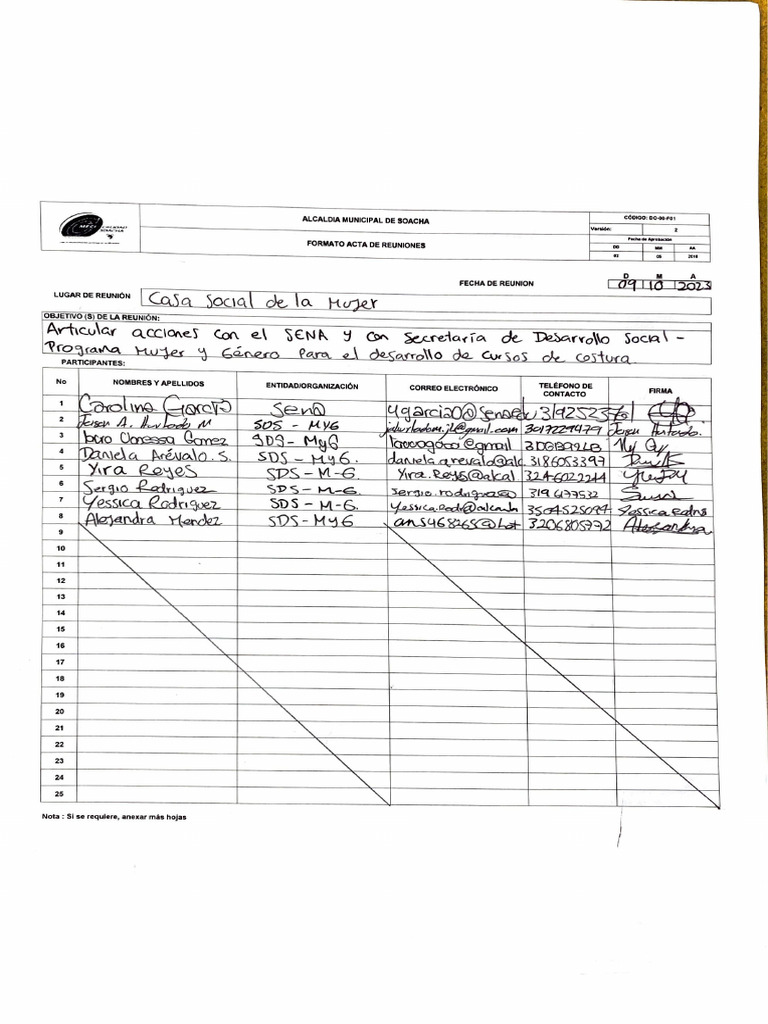 MECI CALIDAD SOACHA
ALCALDIA MUNICIPAL DE SOACHA
FORMATO ACTA DE REUNIONES
CÓDIGO: DC-00-F01
Versión: 2
Fecha de Aprobación
DD MM AA
02 05 2016
FECHA DE REUNION
D M A
09 10 2023
LUGAR DE REUNIÓN Casa Social de la Mujer
OBJETIVO (S) DE LA REUNIÓN:
Articular acciones con el SENA y con Secretaría de Desarrollo Social -
Programa Mujer y Género para el desarrollo de cursos de costura
PARTICIPANTES:
No NOMBRES Y APELLIDOS ENTIDAD/ORGANIZACIÓN CORREO ELECTRÓNICO TELÉFONO DE CONTACTO FIRMA
1 Carolina García Sena
2 Jeison A. Hurtado M SDS - MYG 3017229479 Jeison Hurtado.
3 Vanessa Gomez SDS - MyG
4 Daniela Arévalo. S. SDS - MyG. daniela.arevalo@alc 3186053397
5 Yira Reyes SDS - M-G. Yira.Reyes@alcal 3246022244
6 Sergio Rodriguez SDS - M-G. sergio.rodriguez@ 319477532
7 Yessica Rodríguez SDS - M-G. 3504525094
8 Alejandra Mendez SDS - MyG ans468265@hot 3206805772 Alejandra
9
10
11
12
13
14
15
16
17
18
19
20
21
22
23
24
25
Nota : Si se requiere, anexar más hojas